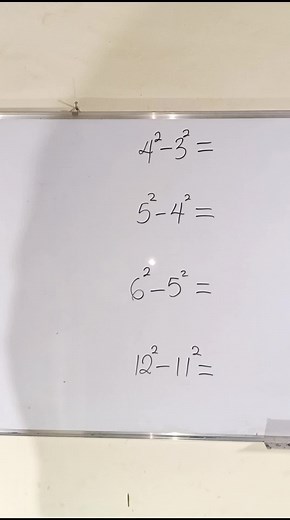 4²-3²=
5²-4²=
6²-5²=
12²-11²=